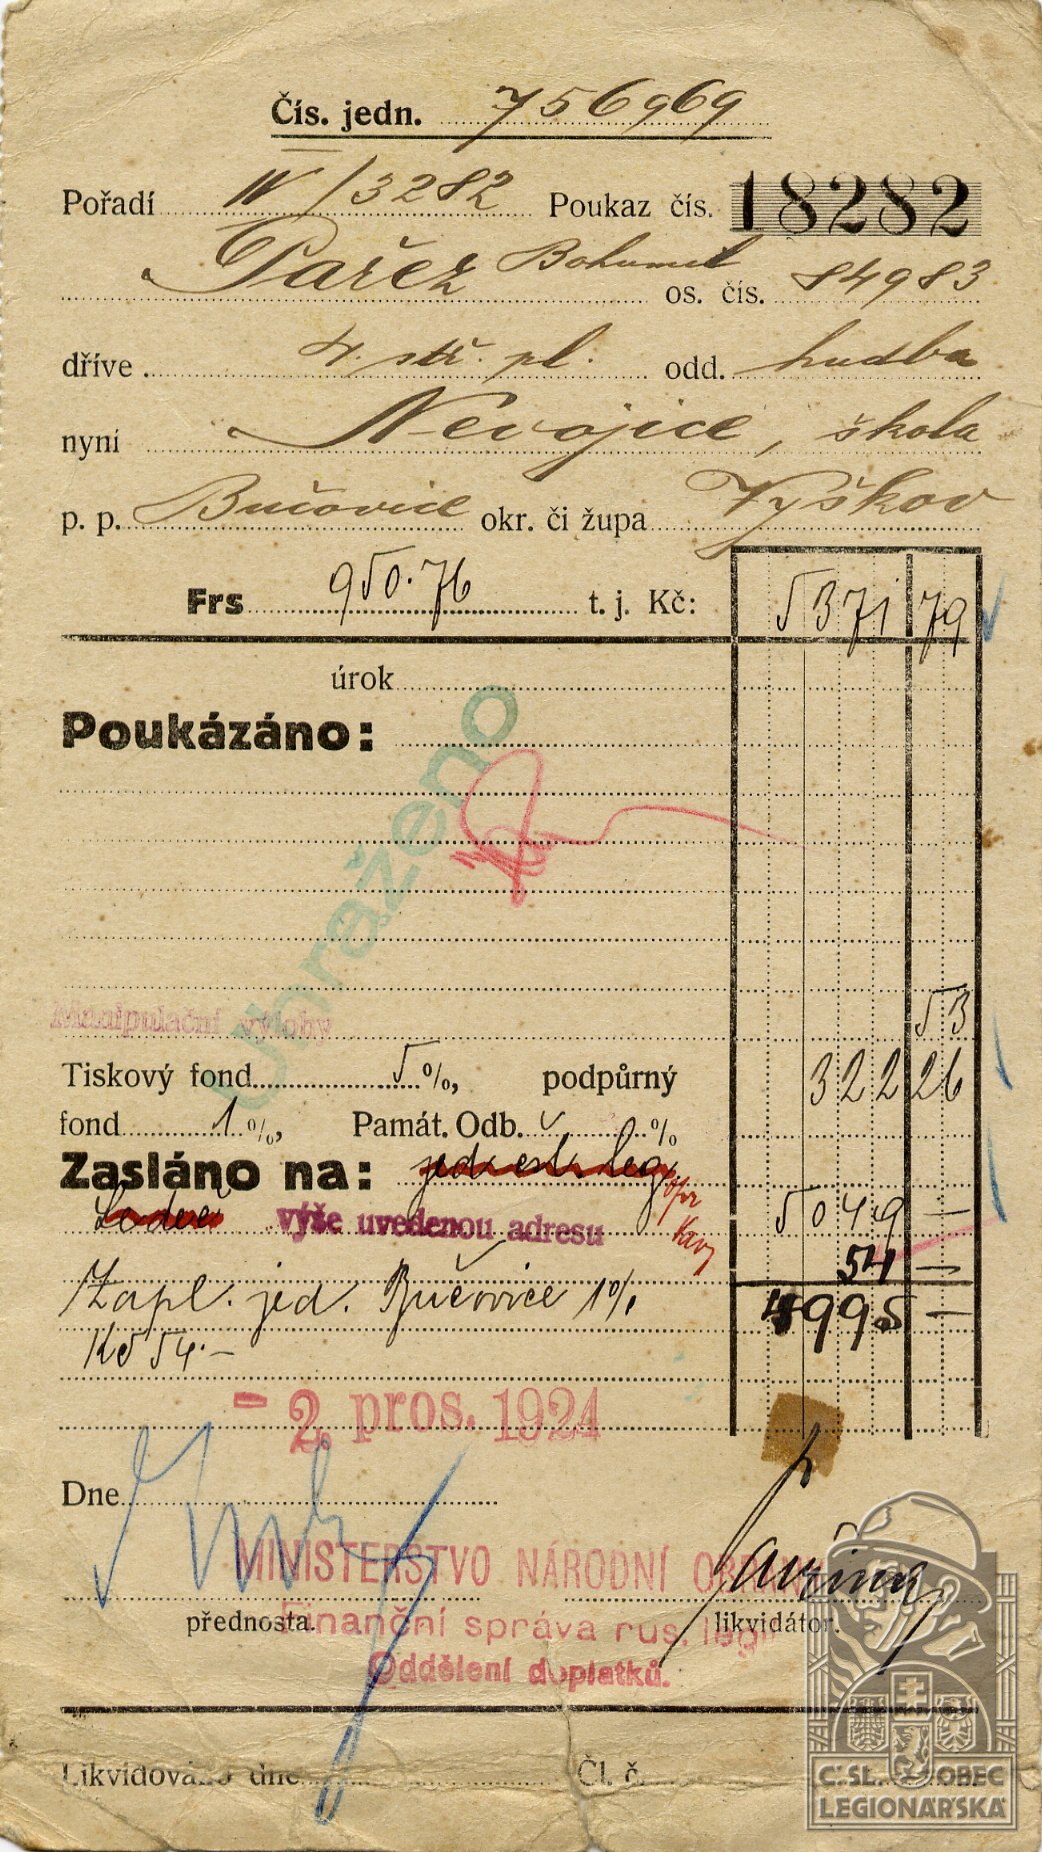 Čís. jedn. 756969
Pořadí IV/3282 Poukaz čís. 18282
Pařez Bohumil os. čís. 84983
dříve 4. stř. pl. odd. hudba
nyní Nevojice, škola
p. p. Bučovice okr. či župa Vyškov
Frs 950.76 t. j. Kč: 5371 79
úrok
Poukázáno:
Uhraženo
53
Manipulační výlohy
Tiskový fond 5%, podpůrný 322 26
fond 1%, Památ. Odb. %
Zasláno na: jedn. čsl. leg
výše uvedenou adresu 5049 —
54 —
Zapl. jed. Bučovice 1% 4995 —
Kč 54.—
- 2. pros. 1924
Dne
MINISTERSTVO NÁRODNÍ OBRANY
přednosta. likvidátor.
Finanční správa rus. legií
Oddělení doplatků.
Likvidováno dne Čl. č.
Č.SL. OBEC
LEGIONÁŘSKÁ